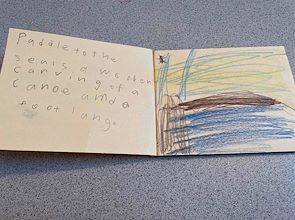 Paddle to the
sea is a wooden
carving of a
canoe and a
foot long.